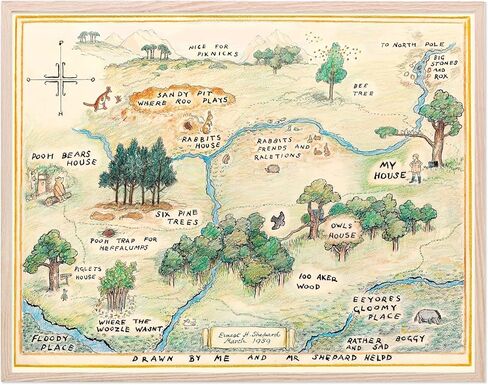 NICE FOR
PIKNICKS
TO NORTH POLE
BIG
STONES
AND
ROX
BEE
TREE
SANDY PIT
WHERE ROO PLAYS
RABBITS
HOUSE
RABBITS
FRENDS AND
RALETIONS
POOH BEARS
HOUSE
MY
HOUSE
SIX PINE
TREES
POOH TRAP FOR
HEFFALUMPS
OWLS
HOUSE
PIGLETS
HOUSE
100 AKER
WOOD
EEYORES
GLOOMY
PLACE
WHERE THE
WOOZLE WASNT
FLOODY
PLACE
Ernest H. Shepard
March 1959
RATHER BOGGY
AND SAD
DRAWN BY ME AND MR SHEPARD HELPD